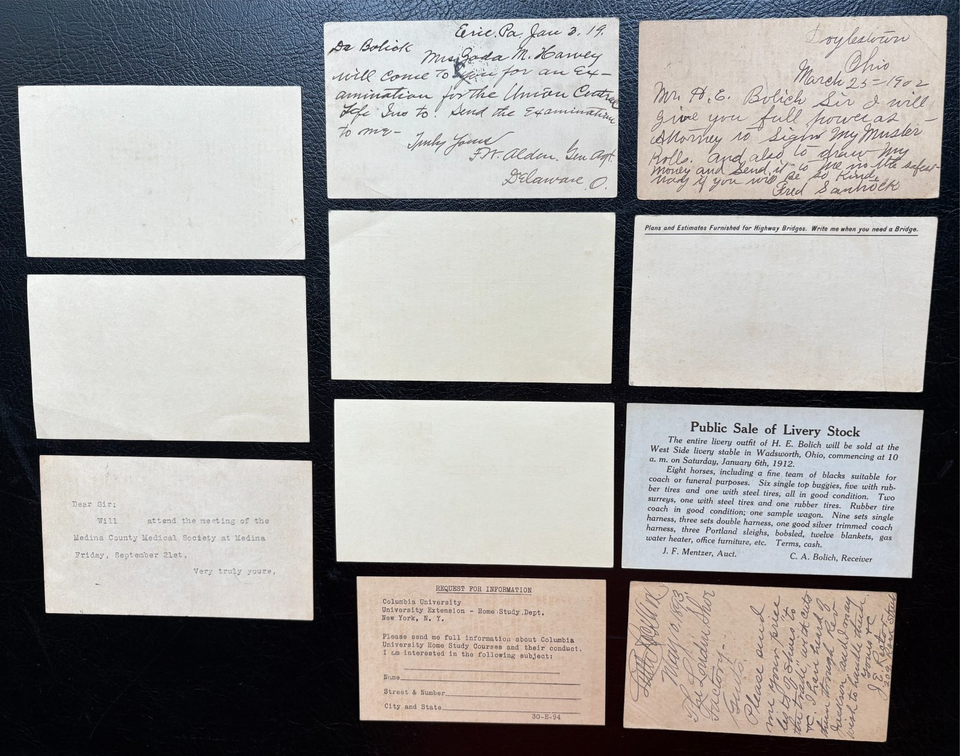 Erie, Pa, Jan 2. 19.
Dr Bolich
Mrs. Zada M. Harvey
will come to you for an Ex-
amination for the Union Central
Life Ins Co. Send the Examination
to me-
Truly Yours
F.W. Alden, Gen Agt.
Delaware O.
Doylestown
Ohio
March 25 = 1902
Mr. H. E. Bolich Sir I will
give you full power as -
Attorney to Sign My Muster
Rolls. and also to draw My
Money and Send it to me in the safest
way if you will be so Kind.
Fred
Plans and Estimates Furnished for Highway Bridges. Write me when you need a Bridge.
Dear Sir:
Will attend the meeting of the
Medina County Medical Society at Medina
Friday, September 21st.
Very truly yours,
Public Sale of Livery Stock
The entire livery outfit of H. E. Bolich will be sold at the
West Side livery stable in Wadsworth, Ohio, commencing at 10
a. m. on Saturday, January 6th, 1912.
Eight horses, including a fine team of blacks suitable for
coach or funeral purposes. Six single top buggies, five with rub-
ber tires and one with steel tires, all in good condition. Two
surreys, one with steel tires and one rubber tires. Rubber tire
coach in good condition; one sample wagon. Nine sets single
harness, three sets double harness, one good silver trimmed coach
harness, three Portland sleighs, bobsled, twelve blankets, gas
water heater, office furniture, etc. Terms, cash.
J. F. Mentzer, Auct. C. A. Bolich, Receiver
REQUEST FOR INFORMATION
Columbia University
University Extension - Home Study Dept.
New York, N. Y.
Please send me full information about Columbia
University Home Study Courses and their conduct.
I am interested in the following subject:
Name
Street & Number
City and State
30-E-94
May 10, 1893
Factory-
Gents.
Please send
me your price